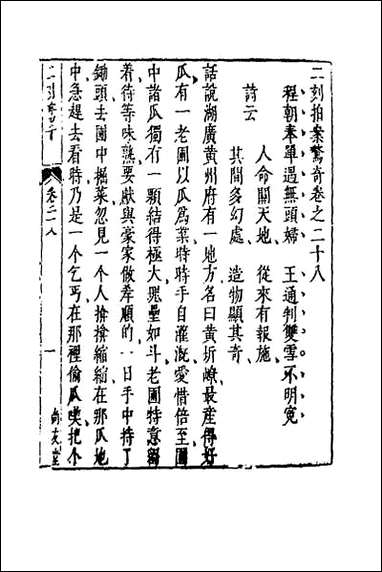 二刻拍案驚奇卷之二十八
程朝奉單遇無頭婦　王通判雙雪不明寃
詩云
人命關天地　從來有報施
其間多幻處　造物顯其奇
話說湖廣黃州府有一地方名曰黃圻嶛最産得好
瓜有一老圃以瓜爲業時時手自灌漑愛惜倍至圃
中諸瓜獨有一顆結得極大塊壘如斗老圃特意留
着待等味熟要獻與豪家做孝順的一日手中持了
鋤頭去園中掘菜忽見一个人掩掩縮縮在那瓜地
中急趕去看時乃是一个乞丐在那裡偷瓜喫把个
二刻驚奇
卷二八
一
尚友堂